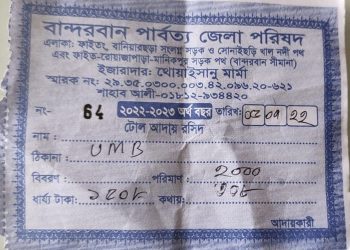 বান্দরবান পার্বত্য জেলা পরিষদ
এলাকা: ফাইতং, বানিয়ারছড়া সংলগ্ন সড়ক ও সোনাইছড়ি খাল নদী পথ
এবং ফাইতং-রোয়াজাপাড়া-মানিকপুর সড়ক পথ (বান্দরবান সীমানা)
ইজারাদার: থোয়াইসানু মার্মা
স্মারক নং: ২৯.৩৫.০৩০০.০০৩.৪২.০৯৬.২০-৬২১
শাহাব আলী-০১৮১২-৯৩৪৪২০
নং- 64 ২০২২-২০২৩ অর্থ বছর তারিখ: 02 09 22
টোল আদায় রসিদ
নাম : UMB
ঠিকানা :
বিবরণ : পরিমাণ : 2000
ধার্য্য টাকা: কথায়:
আদায়কারী